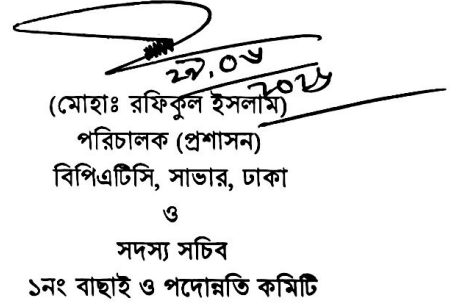 (মোহাঃ রফিকুল ইসলাম)
পরিচালক (প্রশাসন)
বিপিএটিসি, সাভার, ঢাকা
ও
সদস্য সচিব
১নং বাছাই ও পদোন্নতি কমিটি